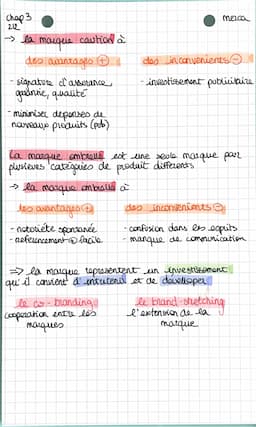 chap 3
2/2
merca
→ la marque caution a
des avantages +
des inconvénients −
- signature d'assurance
garantie, qualité
- investissement publicitaire
- minimiser depenses de
nouveaux produits (pub)
La marque ombrelle est une seule marque pour
plusieurs catégories de produit différents
→ la marque ombrelle a
les avantages +
des inconvenients −
- notoriété spontanée
- confusion dans les esprits
- referencement facile
- manque de communication
⇒ la marque représentent un investissement
qu'il convient d'entretenir et de developper
le co-branding
le brand-stretching
cooperation entre les
marques
l'extension de la
marque